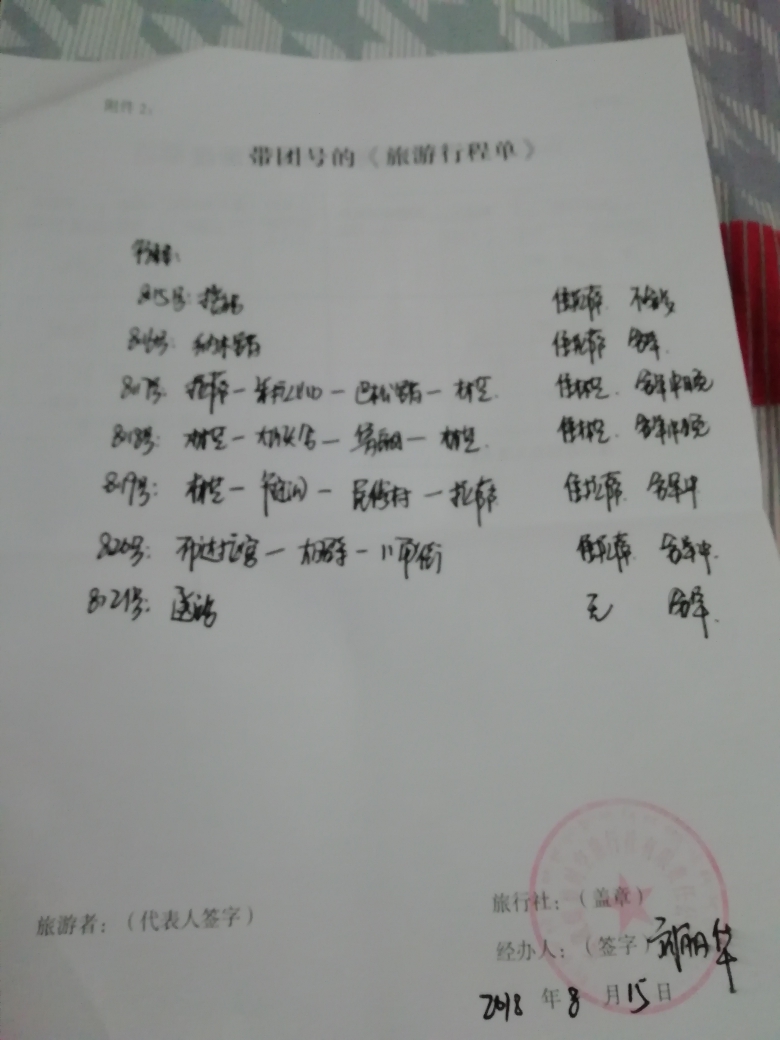 附件2：
带团号的《旅游行程单》
行程：
8.15号：接站 住拉萨 不含餐
8.16号：纳木错 住拉萨 含早
8.17号：拉萨—米拉山口—巴松措—林芝 住林芝 含早中晚
8.18号：林芝—大峡谷—鲁朗—林芝 住林芝 含早中晚
8.19号：林芝— — 民俗村 — 拉萨 住拉萨 含早中
8.20号：布达拉宫—大昭寺—八角街 住拉萨 含早中
8.21号：送站 无 含早
旅行社：（盖章）
旅游者：（代表人签字）
经办人：（签字）
2018 年 8 月 15 日